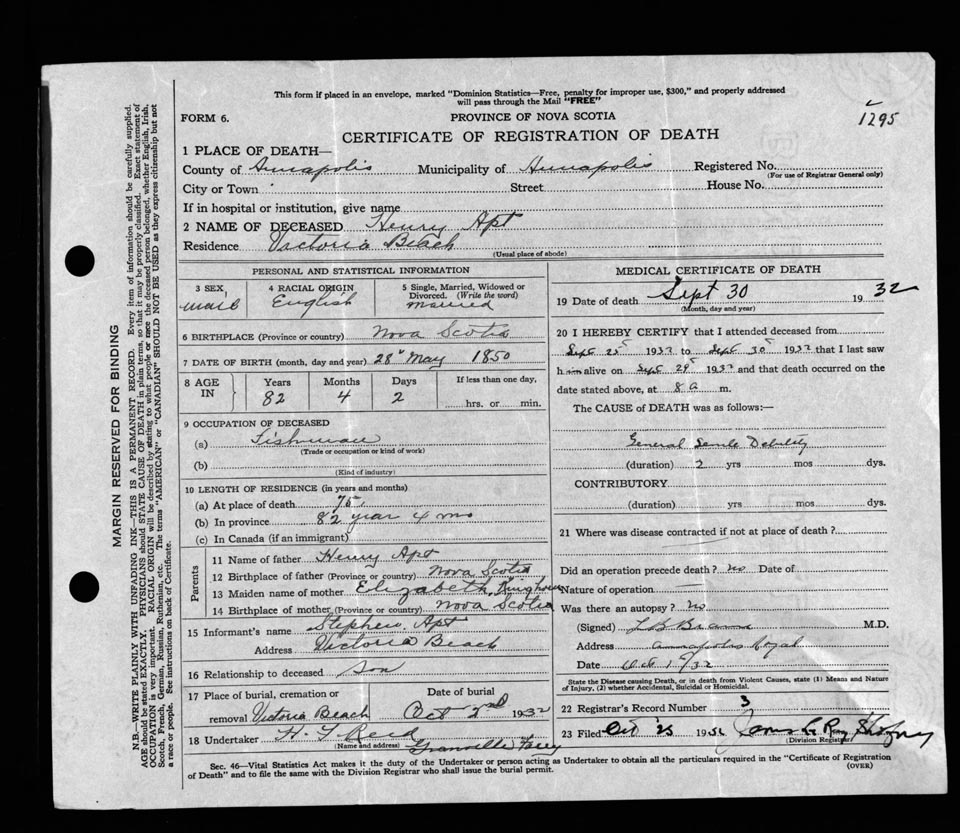 This form if placed in an envelope, marked "Dominion Statistics—Free, penalty for improper use, $300," and properly addressed
will pass through the Mail "FREE"
FORM 6.
PROVINCE OF NOVA SCOTIA
1295
CERTIFICATE OF REGISTRATION OF DEATH
1 PLACE OF DEATH—
County of Annapolis Municipality of Annapolis Registered No.
(For use of Registrar General only)
City or Town Street House No.
If in hospital or institution, give name
2 NAME OF DECEASED Henry Apt
Residence Victoria Beach
(Usual place of abode)
PERSONAL AND STATISTICAL INFORMATION
3 SEX 4 RACIAL ORIGIN 5 Single, Married, Widowed or
Divorced. (Write the word)
English Married
6 BIRTHPLACE (Province or country) Nova Scotia
7 DATE OF BIRTH (month, day and year) 28" May 1850
8 AGE IN Years Months Days If less than one day,
82 4 2 hrs. or min.
9 OCCUPATION OF DECEASED
(a) Fishman
(Trade or occupation or kind of work)
(b)
(Kind of industry)
10 LENGTH OF RESIDENCE (in years and months)
(a) At place of death 75
(b) In province 82 year 4 mo
(c) In Canada (if an immigrant)
Parents
11 Name of father Henry Apt
12 Birthplace of father (Province or country) Nova Scotia
13 Maiden name of mother Elizabeth
14 Birthplace of mother (Province or country) Nova Scotia
15 Informant's name Stephen Apt
Address Victoria Beach
16 Relationship to deceased Son
17 Place of burial, cremation or Date of burial
removal Victoria Beach Oct 2nd 1932
18 Undertaker H. T. Reid
(Name and address) Granville Ferry
MEDICAL CERTIFICATE OF DEATH
19 Date of death Sept 30 1932
(Month, day and year)
20 I HEREBY CERTIFY that I attended deceased from
Sept 25 1932 to Sept 30 1932 that I last saw
him alive on Sept 29 1932 and that death occurred on the
date stated above, at 8 a m.
The CAUSE of DEATH was as follows:—
General Senile Debility
(duration) 2 yrs mos dys.
CONTRIBUTORY
(duration) yrs mos dys.
21 Where was disease contracted if not at place of death?
Did an operation precede death? no Date of
Nature of operation
Was there an autopsy? No
(Signed) L B Braine M.D.
Address Annapolis Royal
Date Oct 1/32
State the Disease causing Death, or in death from Violent Causes, state (1) Means and Nature
of Injury, (2) whether Accidental, Suicidal or Homicidal.
22 Registrar's Record Number 3
23 Filed Oct 193
(Division Registrar)
Sec. 46—Vital Statistics Act makes it the duty of the Undertaker or person acting as Undertaker to obtain all the particulars required in the "Certificate of Registration
of Death" and to file the same with the Division Registrar who shall issue the burial permit.
(OVER)
MARGIN RESERVED FOR BINDING
N.B.—WRITE PLAINLY WITH UNFADING INK—THIS IS A PERMANENT RECORD. Every item of information should be carefully supplied.
AGE should be stated EXACTLY. PHYSICIANS should STATE CAUSE OF DEATH in plain terms, so that it may be properly classified. Exact statement of
OCCUPATION is very important. RACIAL ORIGIN will be described by stating to what people or race the deceased person belonged, whether English, Irish,
Scotch, French, German, Russian, Ruthenian, etc. The terms "AMERICAN" or "CANADIAN" SHOULD NOT BE USED as they express citizenship but not
a race or people. See instructions on back of Certificate.